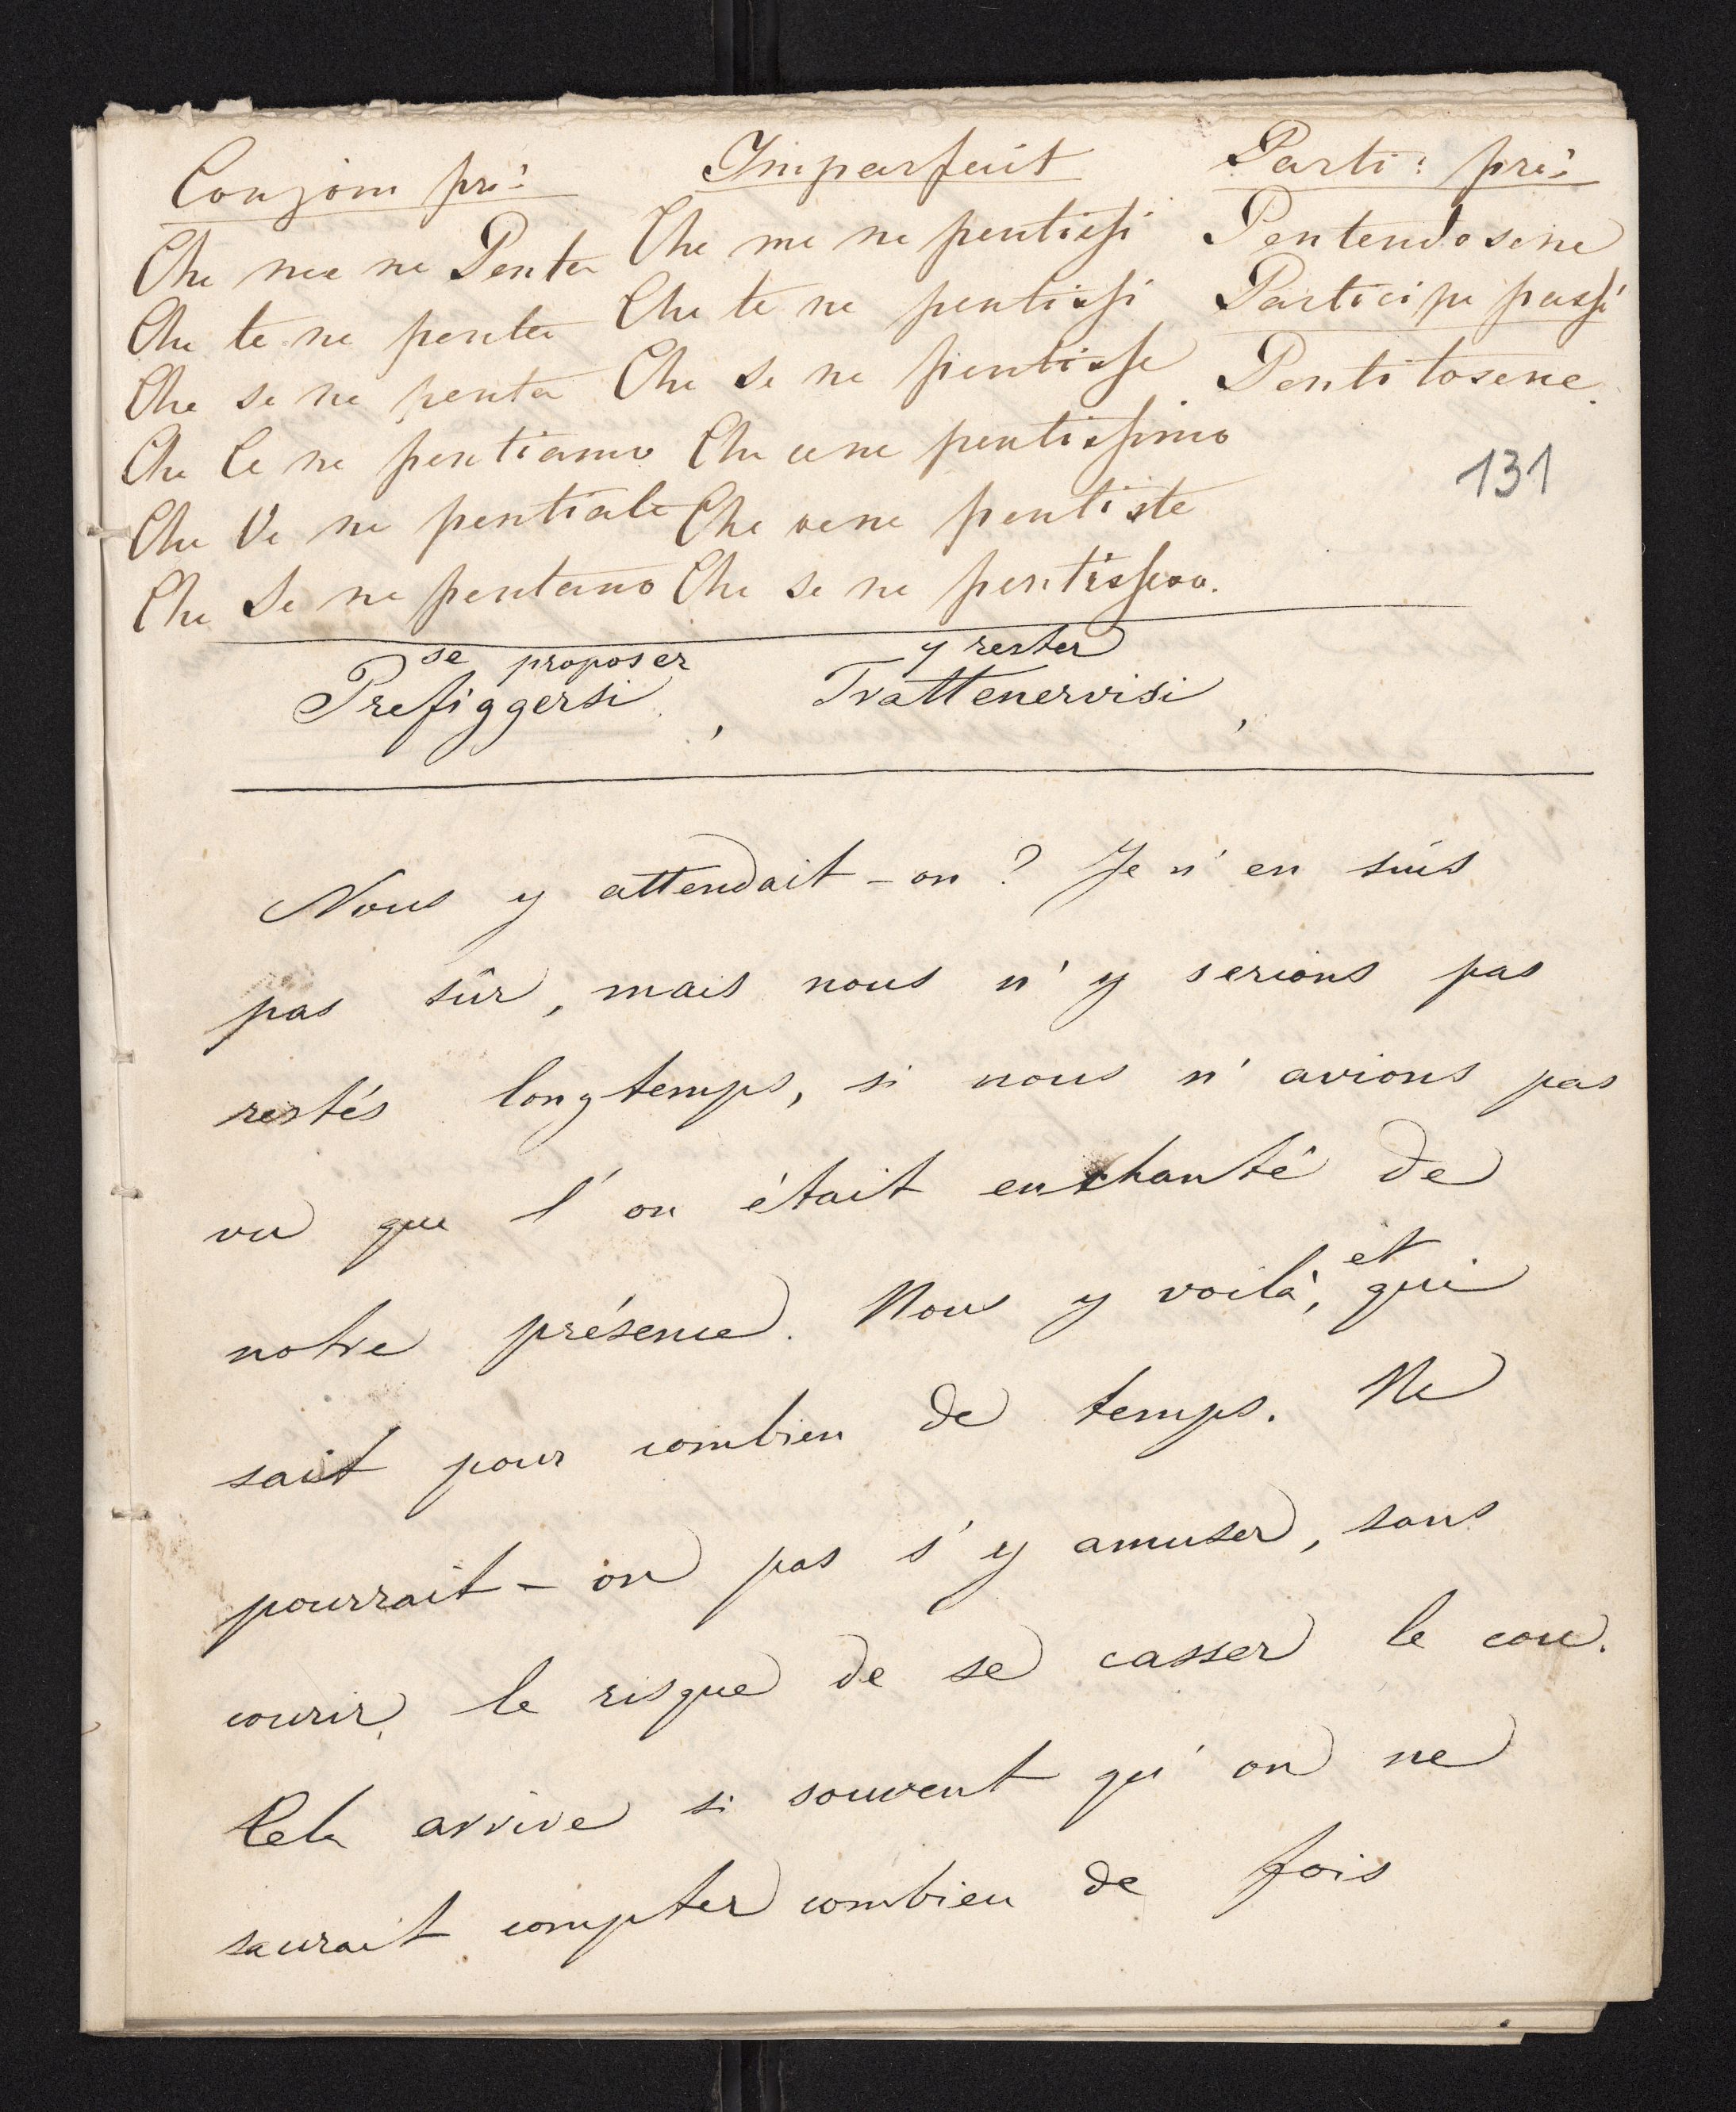 Conjom pré:
Che me ne Penta
Che te ne penta
Che se ne penta
Che Ce ne pentiamo
Che Ve ne pentiate
Che Se ne pentano
Imparfait
Che me ne pentissi
Che te ne pentissi
Che se ne pentisse
Che cene pentissimo
Che vene pentiste
Che se ne pentissero.
Parti: pré:
Pentendosene
Participe passé
Pentitosene.
131
se proposer
Prefiggersi,
y rester
Trattenervisi,
Nous y attendait-on? Je n'en suis
pas sûr, mais nous n'y serions pas
restés longtemps, si nous n'avions pas
vu que l'on était enchanté de
notre présence. Nous y voilà, et qui
sait pour combien de temps. Ne
pourrait-on pas s'y amuser, sans
courir le risque de se casser le cou.
Cela arrive si souvent qu'on ne
saurait compter combien de fois